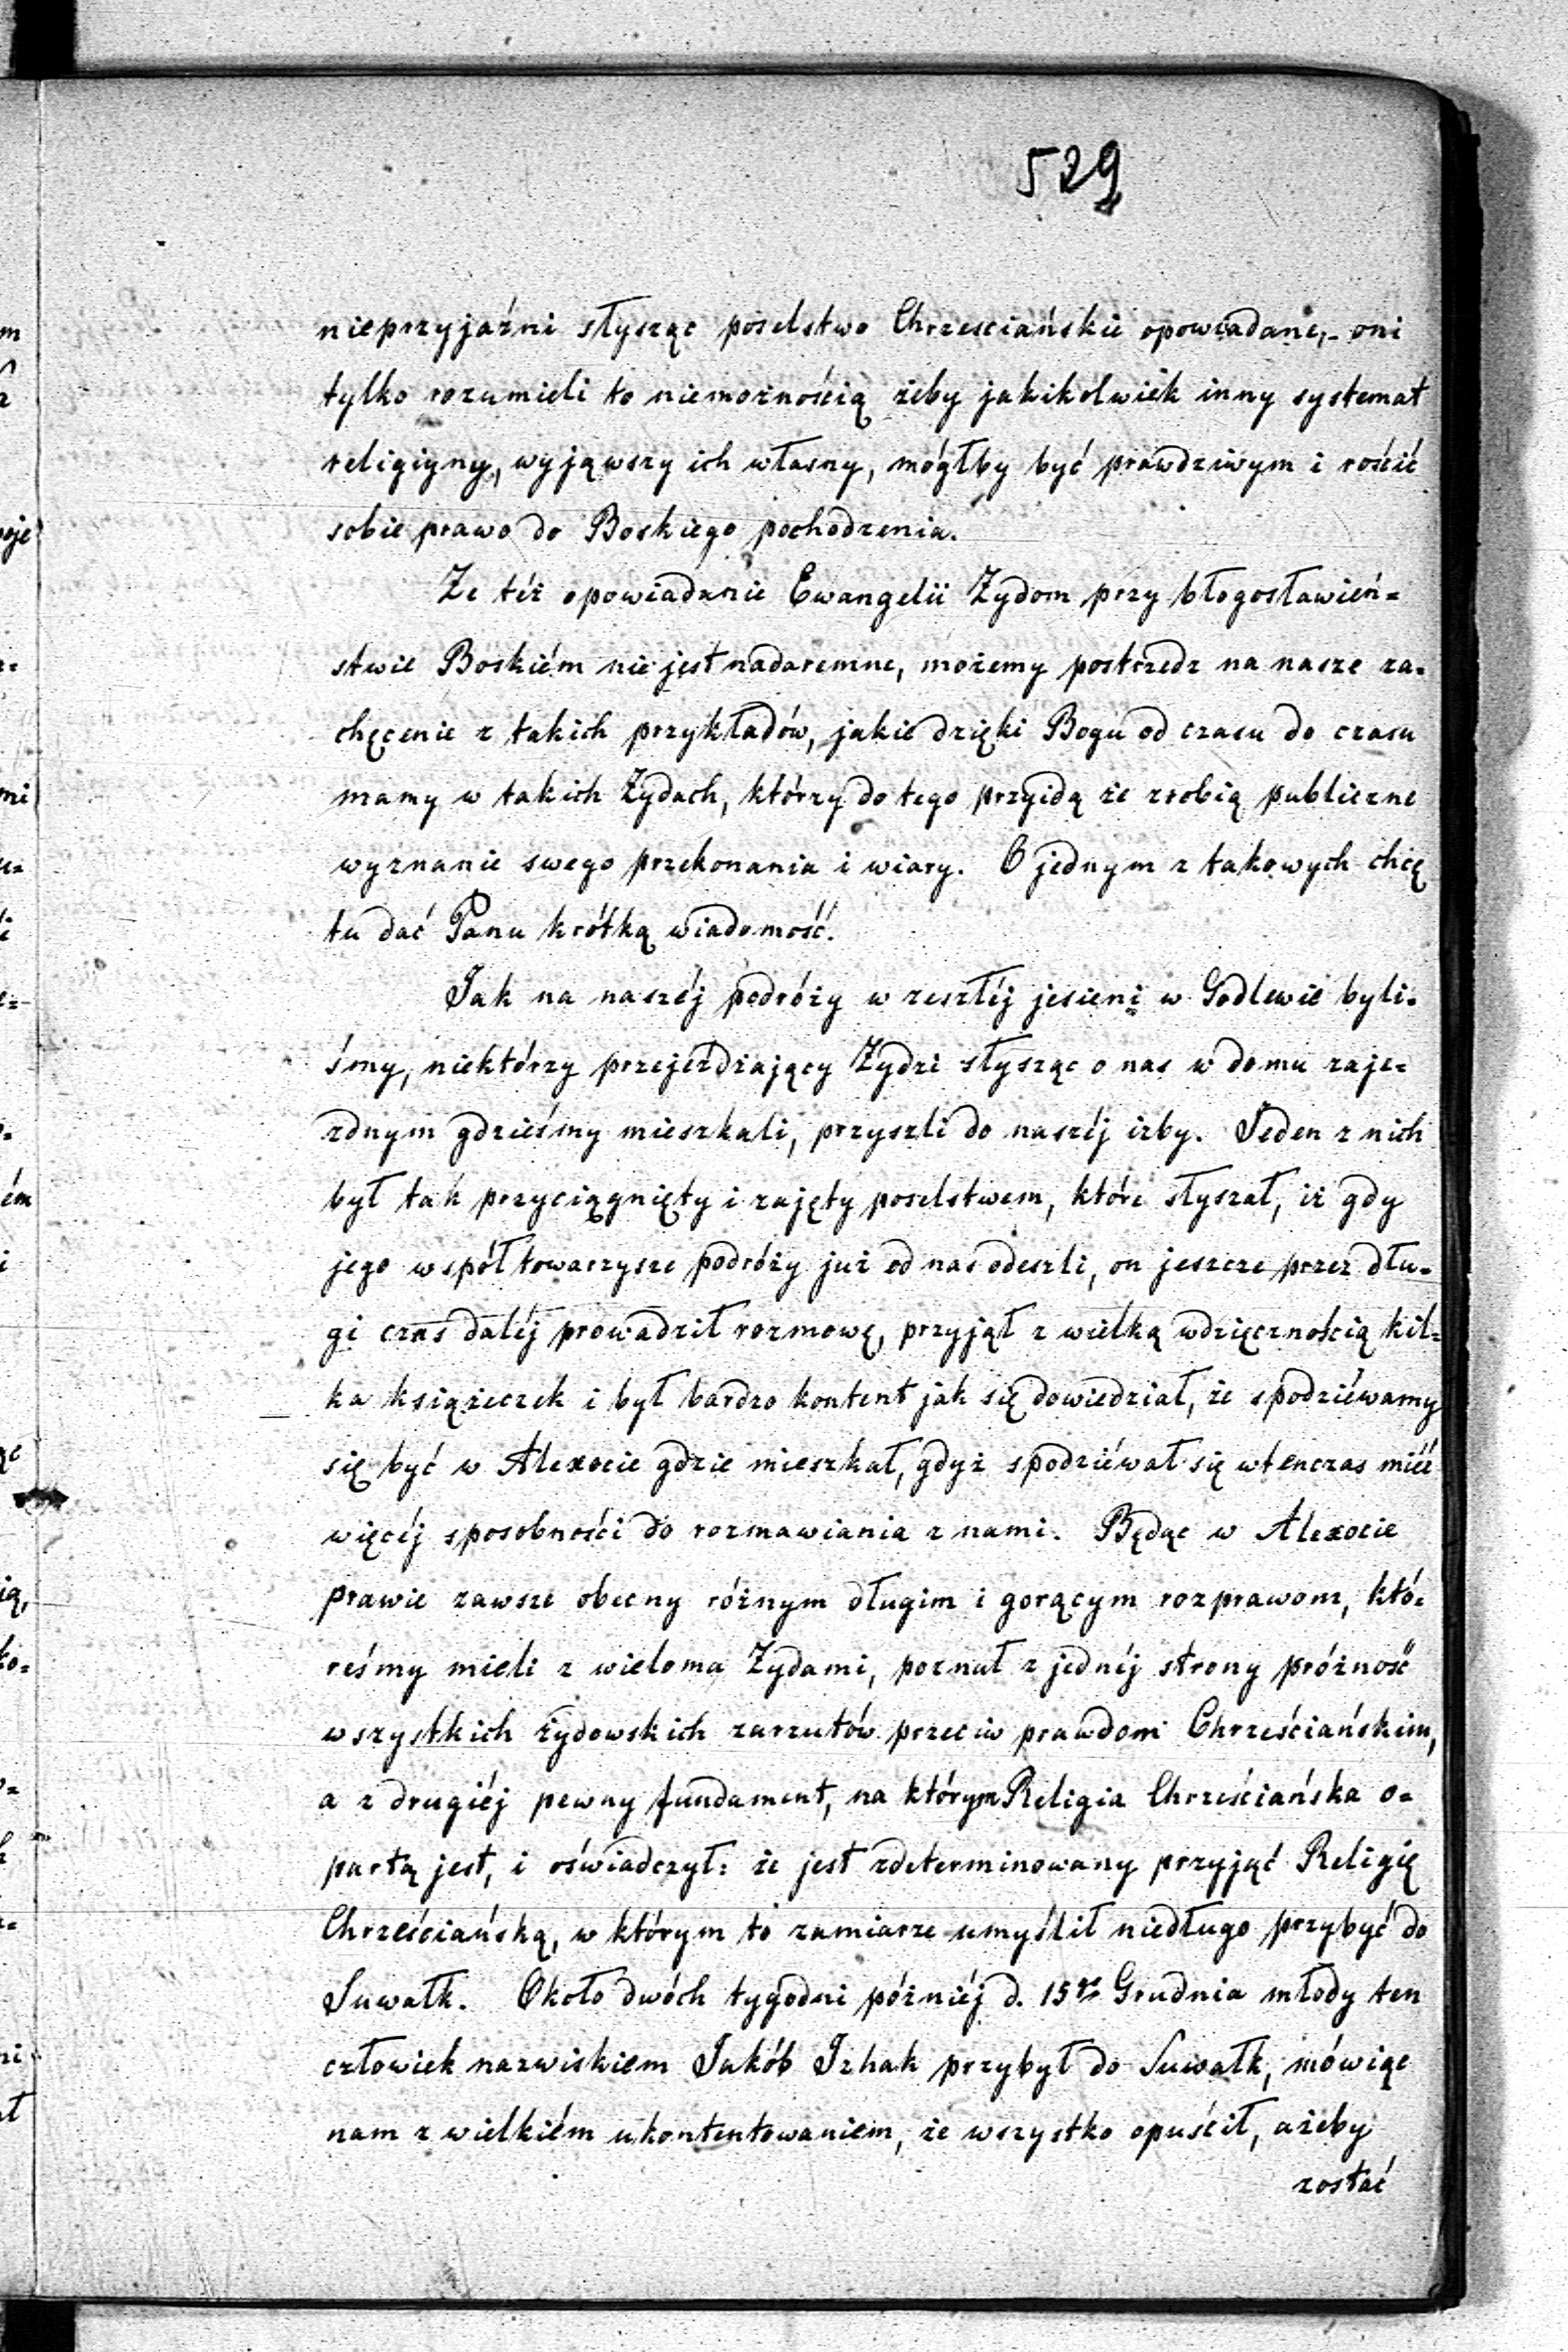 529
nieprzyjaźni słysząc poselstwo Chrześciańskie opowiadane,- oni
tylko rozumieli to niemożnością żeby jakikolwiek inny systemat
religiyny, wyjąwszy ich własny, mógłby być prawdziwym i rościć
sobie prawo do Boskiego pochodzenia.
Że téż opowiadanie Ewangelii Żydom przy błogosławień=
stwie Boskiém nie jest nadaremne, możemy postrzedz na nasze za=
chęcenie z takich przykładów, jakie dzięki Bogu od czasu do czasu
mamy w takich Żydach, którzy do tego przyidą że zrobią publiczne
wyznanie swego przekonania i wiary. O jednym z takowych chcę
tu dać Panu krótką wiadomość.
Jak na naszéj podróży w zeszłéj jesieni w Godlewie byli=
śmy, niektórzy przejeżdżający Żydzi słysząc o nas w domu zaje=
zdnym gdzieśmy mieszkali, przyszli do naszéj izby. Jeden z nich
był tak przyciągnięty i zajęty poselstwem, które słyszał, iż gdy
jego współtowarzysze podróży już od nas odeszli, on jeszcze przez dłu=
gi czas daléj prowadził rozmowę, przyjął z wielką wdzięcznością kil=
ka książeczek i był bardzo kontent jak się dowiedział, że spodziéwamy
się być w Alexocie gdzie mieszkał, gdyż spodziéwał się wtenczas miéć
więcéj sposobności do rozmawiania z nami. Będąc w Alexocie
prawie zawsze obecny różnym długim i gorącym rozprawom, któ=
reśmy mieli z wieloma Żydami, poznał z jednéj strony próżność
wszystkich żydowskich zarzutów przeciw prawdom Chrześciańskim,
a z drugiéj pewny fundament, na którym Religia Chrześciańska o=
partą jest, i oświadczył: że jest zdeterminowany przyjąć Religię
Chrześciańską, w którym to zamiarze umyślił niedługo przybyć do
Suwałk. Około dwóch tygodni późniéj d. 15go Grudnia młody ten
człowiek nazwiskiem Jakób Izhak przybył do Suwałk, mówiąc
nam z wielkiém ukontentowaniem, że wszystko opuścił, ażeby
zostać